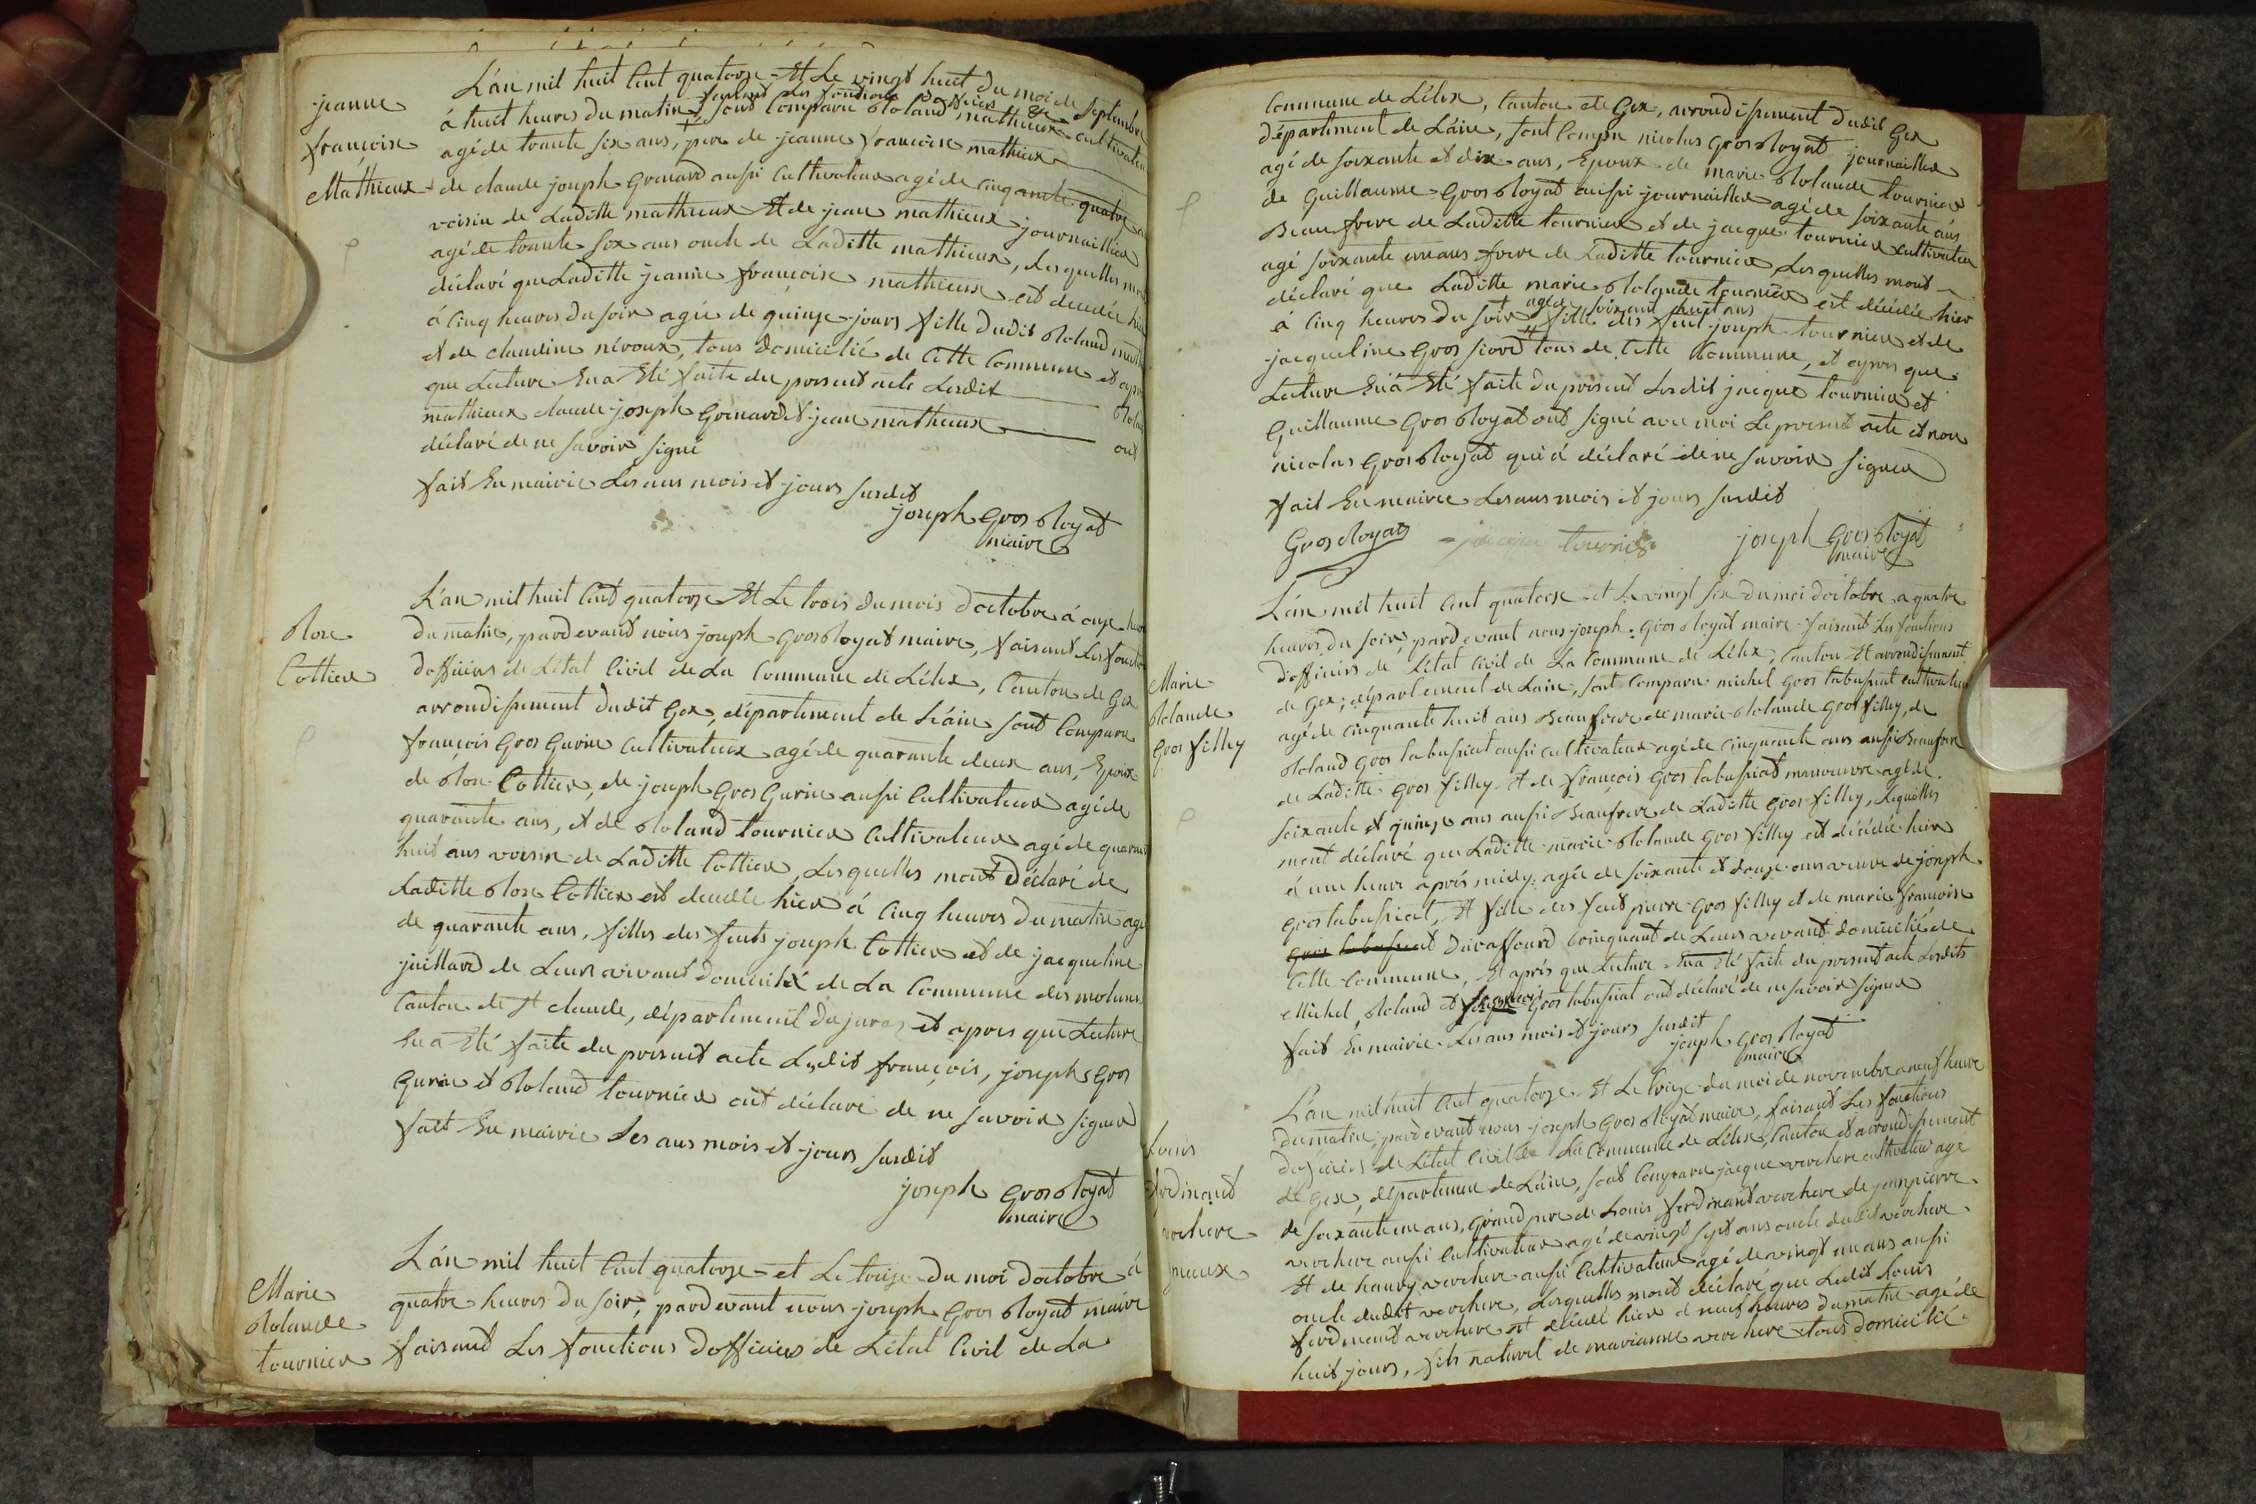 jeanne
françoise
Mathieux
L'an mil huit Cent quatorze Et Le vingt huit du moi de Septembre
faisant Les fonctions d'officiers
à huit heures du matin, + sont Comparu Roland mathieux cultivateur
agé de trante six ans, père de jeanne françoise mathieux
de claude joseph Grenard aussi Cultivateur agé de Cinqante quatre
voisin de Laditte mathieux Et de jean mathieux journaillier
agé de trante six ans oncle de Laditte mathieux, Lesquelles mont
déclaré que Laditte jeanne françoise mathieux est decedée hier
à Cinq heures du soir agée de quinze jours fille dudit Roland
et de claudine névoux, tous domicilié de Cette Commune et après
que Lecture En a Eté faite du present acte Lesdit Roland
mathieux claude joseph Grenard et jean mathieux ont
déclaré de ne savoir signé
fait En mairie Les ans mois et jours susdit
joseph Gros Royat
maire
Rose
Cottier
L'an mil huit Cent quatorze Et Le trois du mois d'octobre à onze heures
du matin, pardevant nous joseph Gros Royat maire, faisant Les fonctions
d'officiers de L'état Civil de La Commune de Lélex, Canton de Gex
arrondissement dudit Gex, département de L'ain sont Comparu
françois Gros Gurin Cultivateur agé de quarante deux ans, Epoux
de Rose Cottier, de joseph Gros Gurin aussi Cultivateur agé de
quarante ans, et de Roland tournier Cultivateur agé de quarante
huit ans voisin de Laditte Cottier, Lesquelles mont déclaré de
Laditte Rose Cottier est decedée hier à Cinq heures du matin agée
de quarante ans, filles des feuts joseph Cottier et de jacqueline
juillard de Leurs vivant domicilié de La Commune des molunes
Canton de St claude, département du juras et après que Lecture
En a Eté faite du present acte Lesdit françois, joseph Gros
Gurin et Roland tournier ont déclaré de ne savoir signer
fait En mairie Les ans mois et jours susdit
joseph Gros Royat
maire
Marie
Rolande
tournier
L'an mil huit Cent quatorze et Le treize du moi d'octobre à
quatre heures du soir, pardevant nous joseph Gros Royat maire
faisant Les fonctions d'officiers de L'état Civil de La
Commune de Lélex, Canton de Gex, arrondissement dudit Gex
département de L'ain, sont Compru nicolas Gros Royat journaillier
agé de soixante et dix ans, Epoux de marie Rolande tournier
de Guillaume Gros Royat aussi journaillier agé de soixante ans
Beaufrere de Laditte tournier et de jacque tournier cultivateur
agé soixante un ans frere de Laditte tournier, Lesquelles mont
déclaré que Laditte marie Rolande tournier est décédée hier
agée soixant huit ans
à Cinq heures du soir + fille des feut joseph tournier et de
jacqueline Gros tous de Cette Commune, et apres que
Lecture En a Eté faite du present Lesdit jacque tournier et
Guillaume Gros Royat ont signé avec moi Le present acte et non
nicolas Gros Royat qui a déclaré de ne savoir signer
fait En mairie Les ans mois et jours susdit
Gros Royat jacque tournier joseph Gros Royat
maire
Marie
Rolande
Gros filley
L'an mil huit Cent quatorze et Le vingt six du moi d'octobre a quatre
heures du soir, pardevant nous joseph Gros Royat maire faisant Les fonctions
d'officiers de L'état Civil de La Commune de Lélex, Canton Et arrondissement
de Gex, département de L'ain, sont Comparu michel Gros tabussiat cultivateur
agé de cinquante huit ans Beaufrere de marie Rolande Gros filley, de
Roland Gros tabussiat aussi cultivateur agé de cinquante ans aussi Beaufrere
de Laditte Gros filley Et de françois Gros tabussiat manoeuvre agé de
soixante et quinze ans aussi Beaufrere de Laditte Gros filley, Lesquelles
mont déclaré que Laditte marie Rolande Gros filley est décédée hier
à une heure après midy agée de soixante et douze ans veuve de joseph
Gros tabussiat, Et fille des feut pierre Gros filley et de marie françoise
Gros tabussiat Ducaffourd Coinquant de Leurs vivant domicilié de
Cette Commune, Et après que Lecture En a Eté faite du present acte Lesdits
Michel, Roland et françois Gros tabussiat ont déclaré de ne savoir signer
fait En mairie Les ans mois et jours susdit
joseph Gros Royat
maire
Louis
ferdinant
verchere
L'an mil huit Cent quatorze Et Le treize du moi de novembre a neuf heure
du matin, pardevant nous joseph Gros Royat maire, faisant Les fonctions
d'officiers de L'état Civil de La Commune de Lélex, Canton et arrondissement
de Gex, départemen de L'ain, sont Comparu jacque verchere cultivateur agé
de soixante un ans, Grand pere de Louis ferdinant verchere de jeanpierre
verchere aussi Cultivateur agé de vingt sept ans oncle dudit verchere
Et de haury verchere aussi Cultivateur agé de vingt un ans aussi
oncle dudit verchere, Lesquelles mont déclaré que Ledit Louis
ferdinant verchere est décédé hier à neuf heures du matin agé de
huit jours, fils naturel de marianne verchere tous domicilié